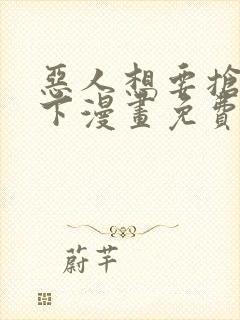 惡人想要搶
下漫畫免費
蔚芊